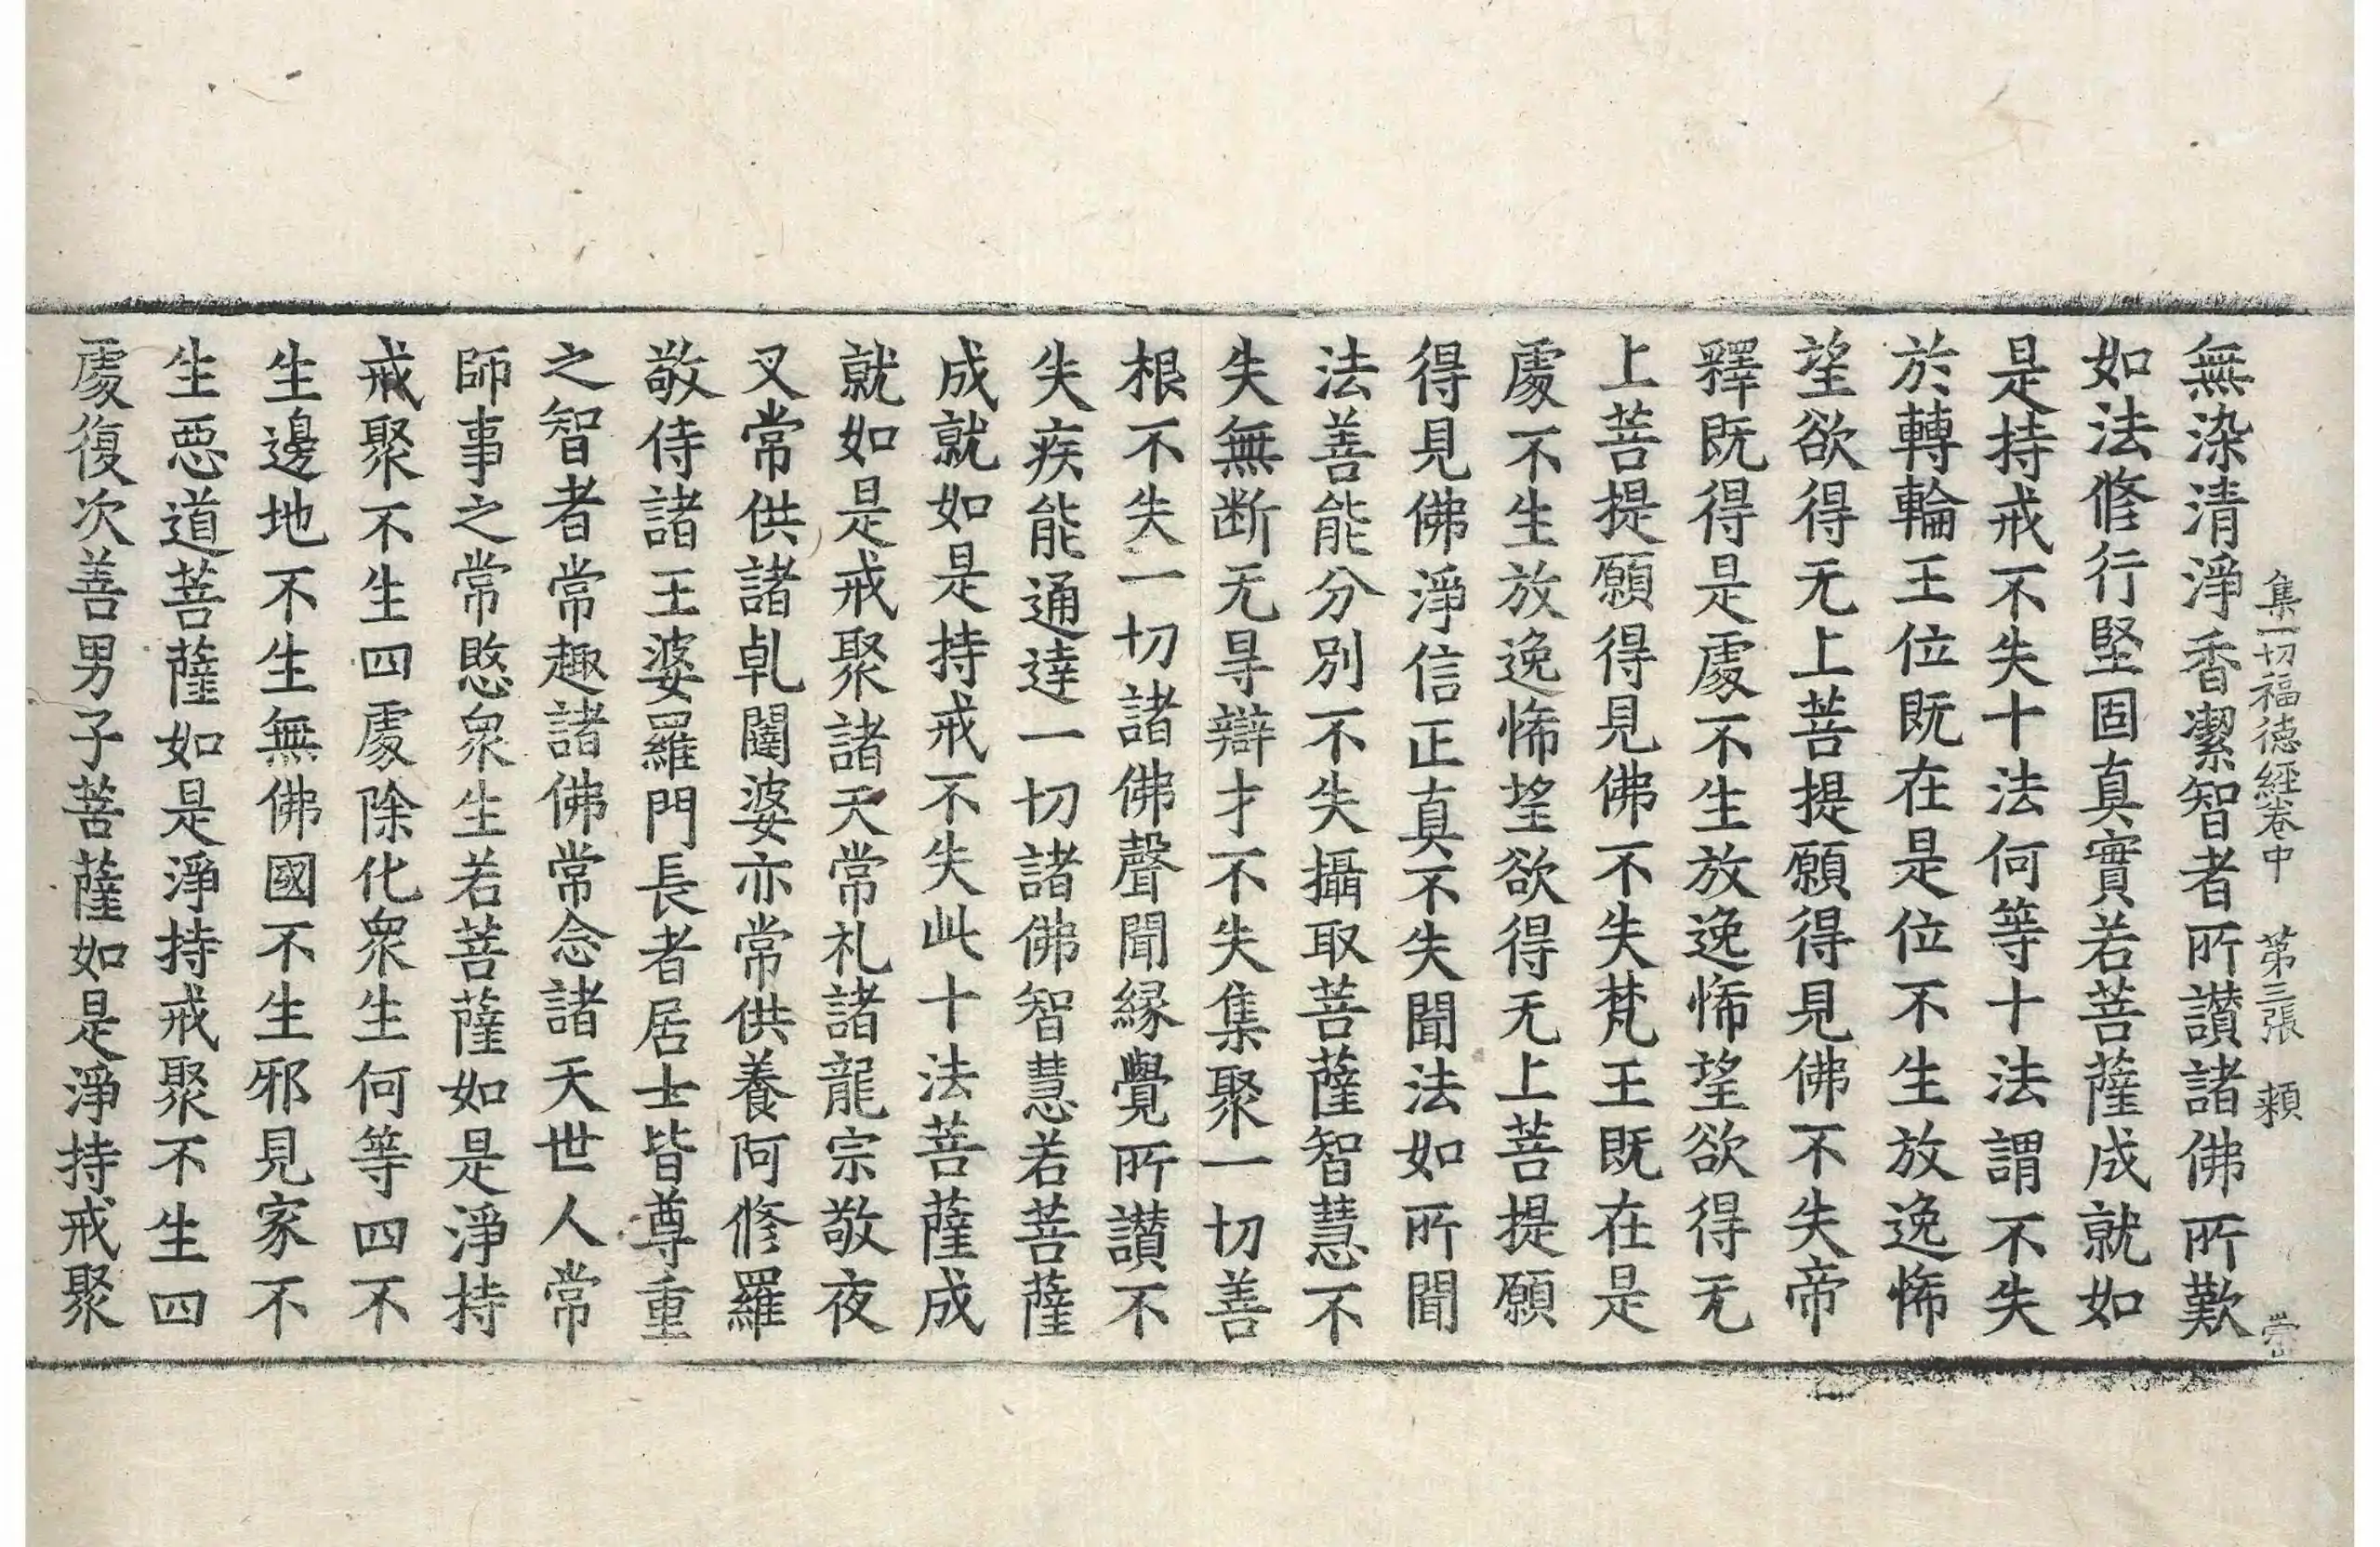 集一切福德經卷中　第三張　頼
無染清淨香潔智者所讃諸佛所歎
如法修行堅固真實若菩薩成就如
是持戒不失十法何等十法謂不失
於轉輪王位既在是位不生放逸悕
望欲得无上菩提願得見佛不失帝
釋既得是處不生放逸悕望欲得无
上菩提願得見佛不失梵王既在是
處不生放逸悕望欲得无上菩提願
得見佛淨信正真不失聞法如所聞
法善能分別不失攝取菩薩智慧不
失無断无㝵辯才不失集聚一切善
根不失一切諸佛聲聞縁覺所讃不
失疾能通達一切諸佛智慧若菩薩
成就如是持戒不失此十法菩薩成
就如是戒聚諸天常礼諸龍宗敬夜
叉常供諸乹闥婆亦常供養阿修羅
敬侍諸王婆羅門長者居士皆尊重
之智者常趣諸佛常念諸天世人常
師事之常愍衆生若菩薩如是淨持
戒聚不生四處除化衆生何等四不
生邊地不生無佛國不生邪見家不
生惡道菩薩如是淨持戒聚不生四
處復次善男子菩薩如是淨持戒聚